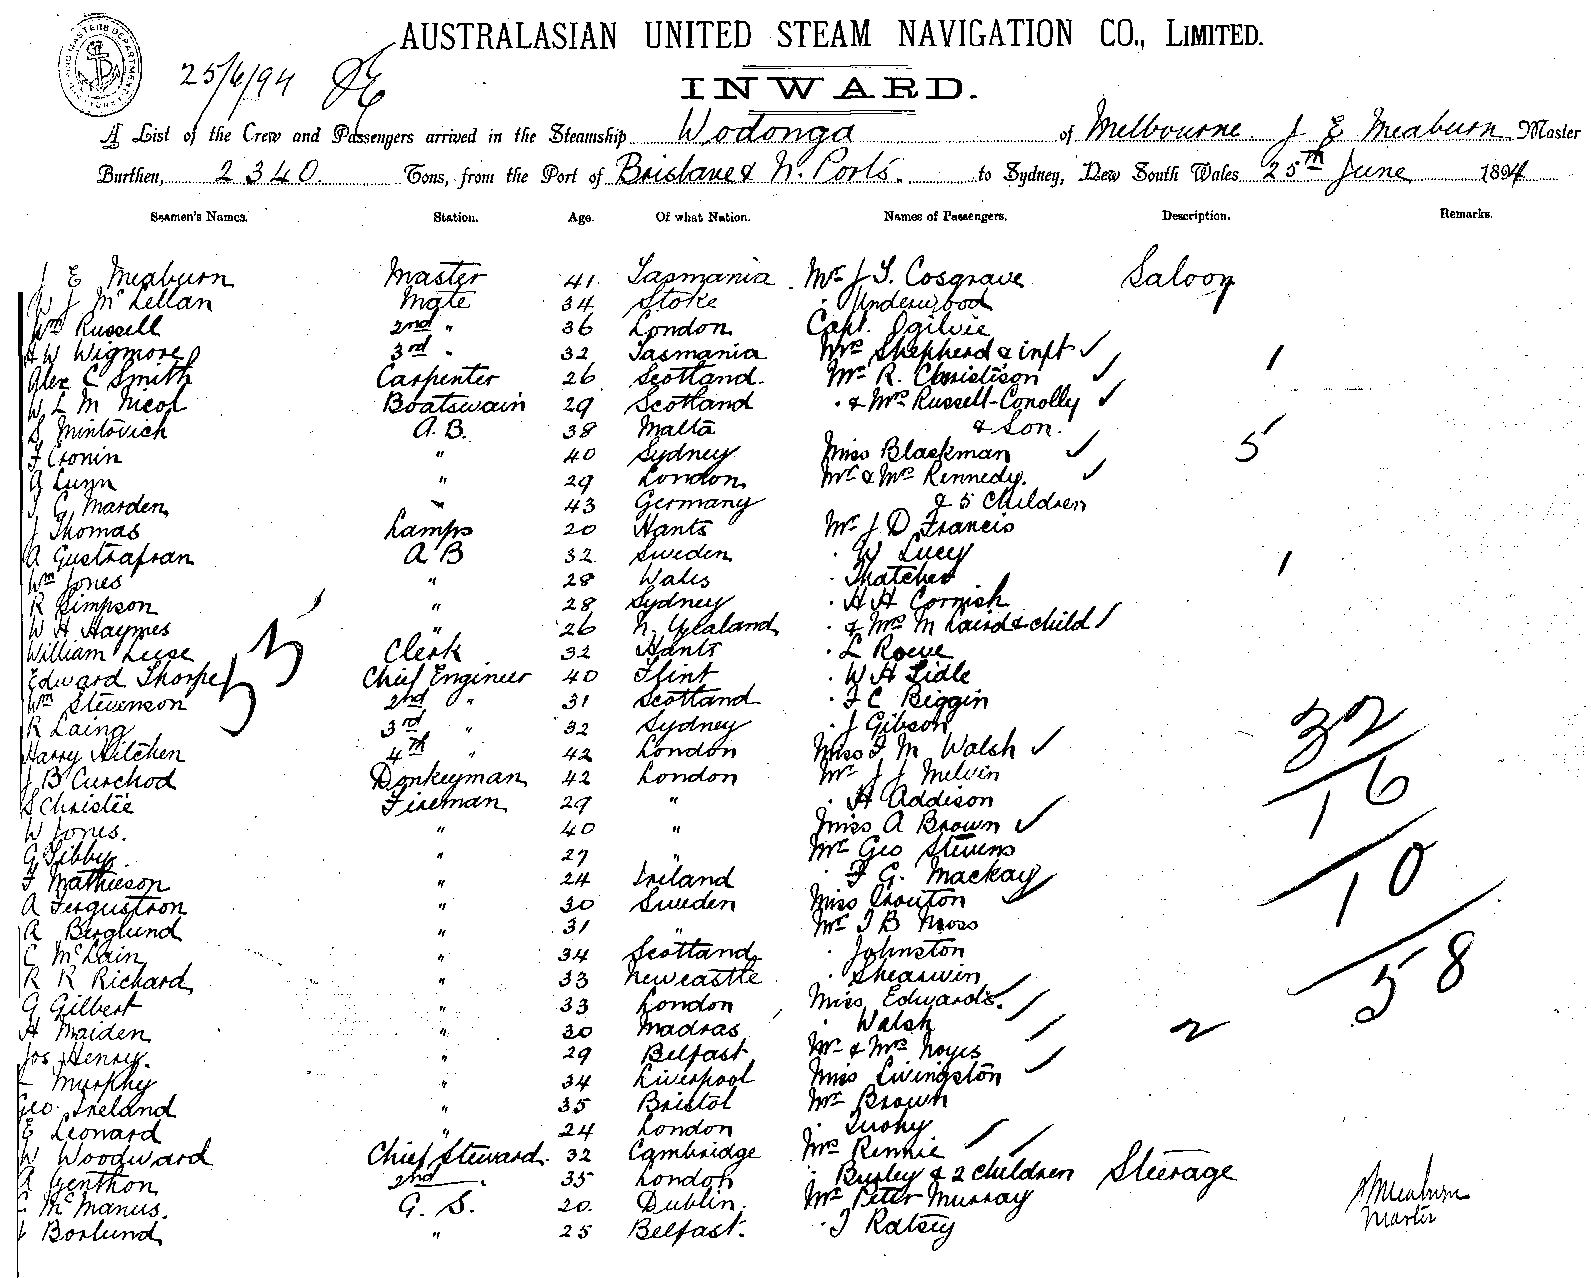 AUSTRALASIAN UNITED STEAM NAVIGATION CO., LIMITED.
25/6/94
INWARD.
A List of the Crew and Passengers arrived in the Steamship Wodonga of Melbourne J E Meaburn Master
Burthen, 2340 Tons, from the Port of Brisbane & N. Ports. to Sydney, New South Wales 25th June 1894
Seamen's Names. Station. Age. Of what Nation. Names of Passengers. Description. Remarks.
J E Meaburn Master 41 Tasmania Mr J T. Cosgrave Saloon
W J McLellan Mate 34 Stoke " Underwood
Wm Russell 2nd " 36 London Capt. Ogilvie
A W Wigmore 3rd " 32 Tasmania Mrs Shepherd & inft ✓ 1
Alex C Smith Carpenter 26 Scotland. Mr R. Christison ✓
W L M Nicol Boatswain 29 Scotland " & Mrs Russell-Conolly ✓
S Mintovich A.B. 38 Malta & Son. 5
F Cronin " 40 Sydney Miss Blackman ✓
A Lunn " 29 London Mr & Mrs Kennedy. ✓
J G Marden " 43 Germany & 5 Children
J Thomas Lamps 20 Hants Mr J. D. Francis
A Gustrafran A B 32 Sweden " W Lucy
Wm Jones " 28 Wales " Thatcher 1
R Simpson " 28 Sydney " H H Cornish
W H Haymes " 26 N. Zealand " & Mrs M Laird & child
William Leese Clerk 32 Hants " L Roeve
Edward Thorpe Chief Engineer 40 Flint " W H Lidle
Wm Stevenson 2nd " 31 Scotland " F C Biggin
R Laing 3rd " 32 Sydney " J Gibson
Harry Hitchen 4th " 42 London Miss F M Walsh ✓
J B Curchod Donkeyman 42 London Mr J J Melvin
S Christie Fireman 29 " " H Addison
W Jones. " 40 " Miss A Brown ✓
G Libby. " 27 " Mr Geo Stevens
F Mathieson " 24 Ireland " F G. Mackay
A Fergustron " 30 Sweden Miss Crouton ✓
A Berglund " 31 " Mr T B Moss
C McLain " 34 Scotland " Johnston
R R Richard " 33 Newcastle " Shearwin
G Gilbert " 33 London Miss Edwards.
H Maiden " 30 Madras " Walsh 2
Jos Henry. " 29 Belfast Mr & Mrs Noyes
Murphy " 34 Liverpool Miss Livingston ✓
Geo. Ireland " 35 Bristol Mr Brown
E Leonard " 24 London
W Woodward Chief Steward. 32 Cambridge Mrs Rennie
A Genthon 2nd 35 London " Burley & 2 children Steerage
McManus. G. S. 20. Dublin. Mr Peter Murray
Borlund " 25 Belfast. " T Ratsey
32
16
10
58
J Meaburn
Master